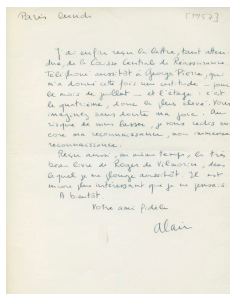 Paris lundi
J'ai enfin reçu la lettre, tant atten-
due, de la Caisse Centrale de Réassurance.
Téléphoné aussitôt à Georges Pierre, qui
m'a donné cette fois une certitude : pour
le mois de juillet - et l'étage : c'est
le quatrième, donc le plus élevé. Vous
imaginez sans doute ma joie. Au
risque de vous lasser, je vous redis en-
core ma reconnaissance, mon immense
reconnaissance.
Reçu aussi, en même temps, le très
beau livre de Roger de Vilmorin, dans
lequel je me plonge aussitôt. Il est
encore plus intéressant que je ne pensais
A bientôt
Votre ami fidèle
Alain